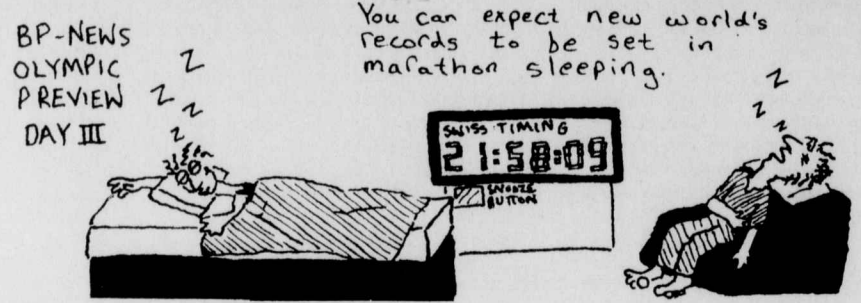 BP-NEWS
OLYMPIC
PREVIEW
DAY III
You can expect new world's
records to be set in
marathon sleeping.
Z
Z
Z
Z
Z
Z
Z
SWISS TIMING
21:58:09
SNOOZE
BUTTON